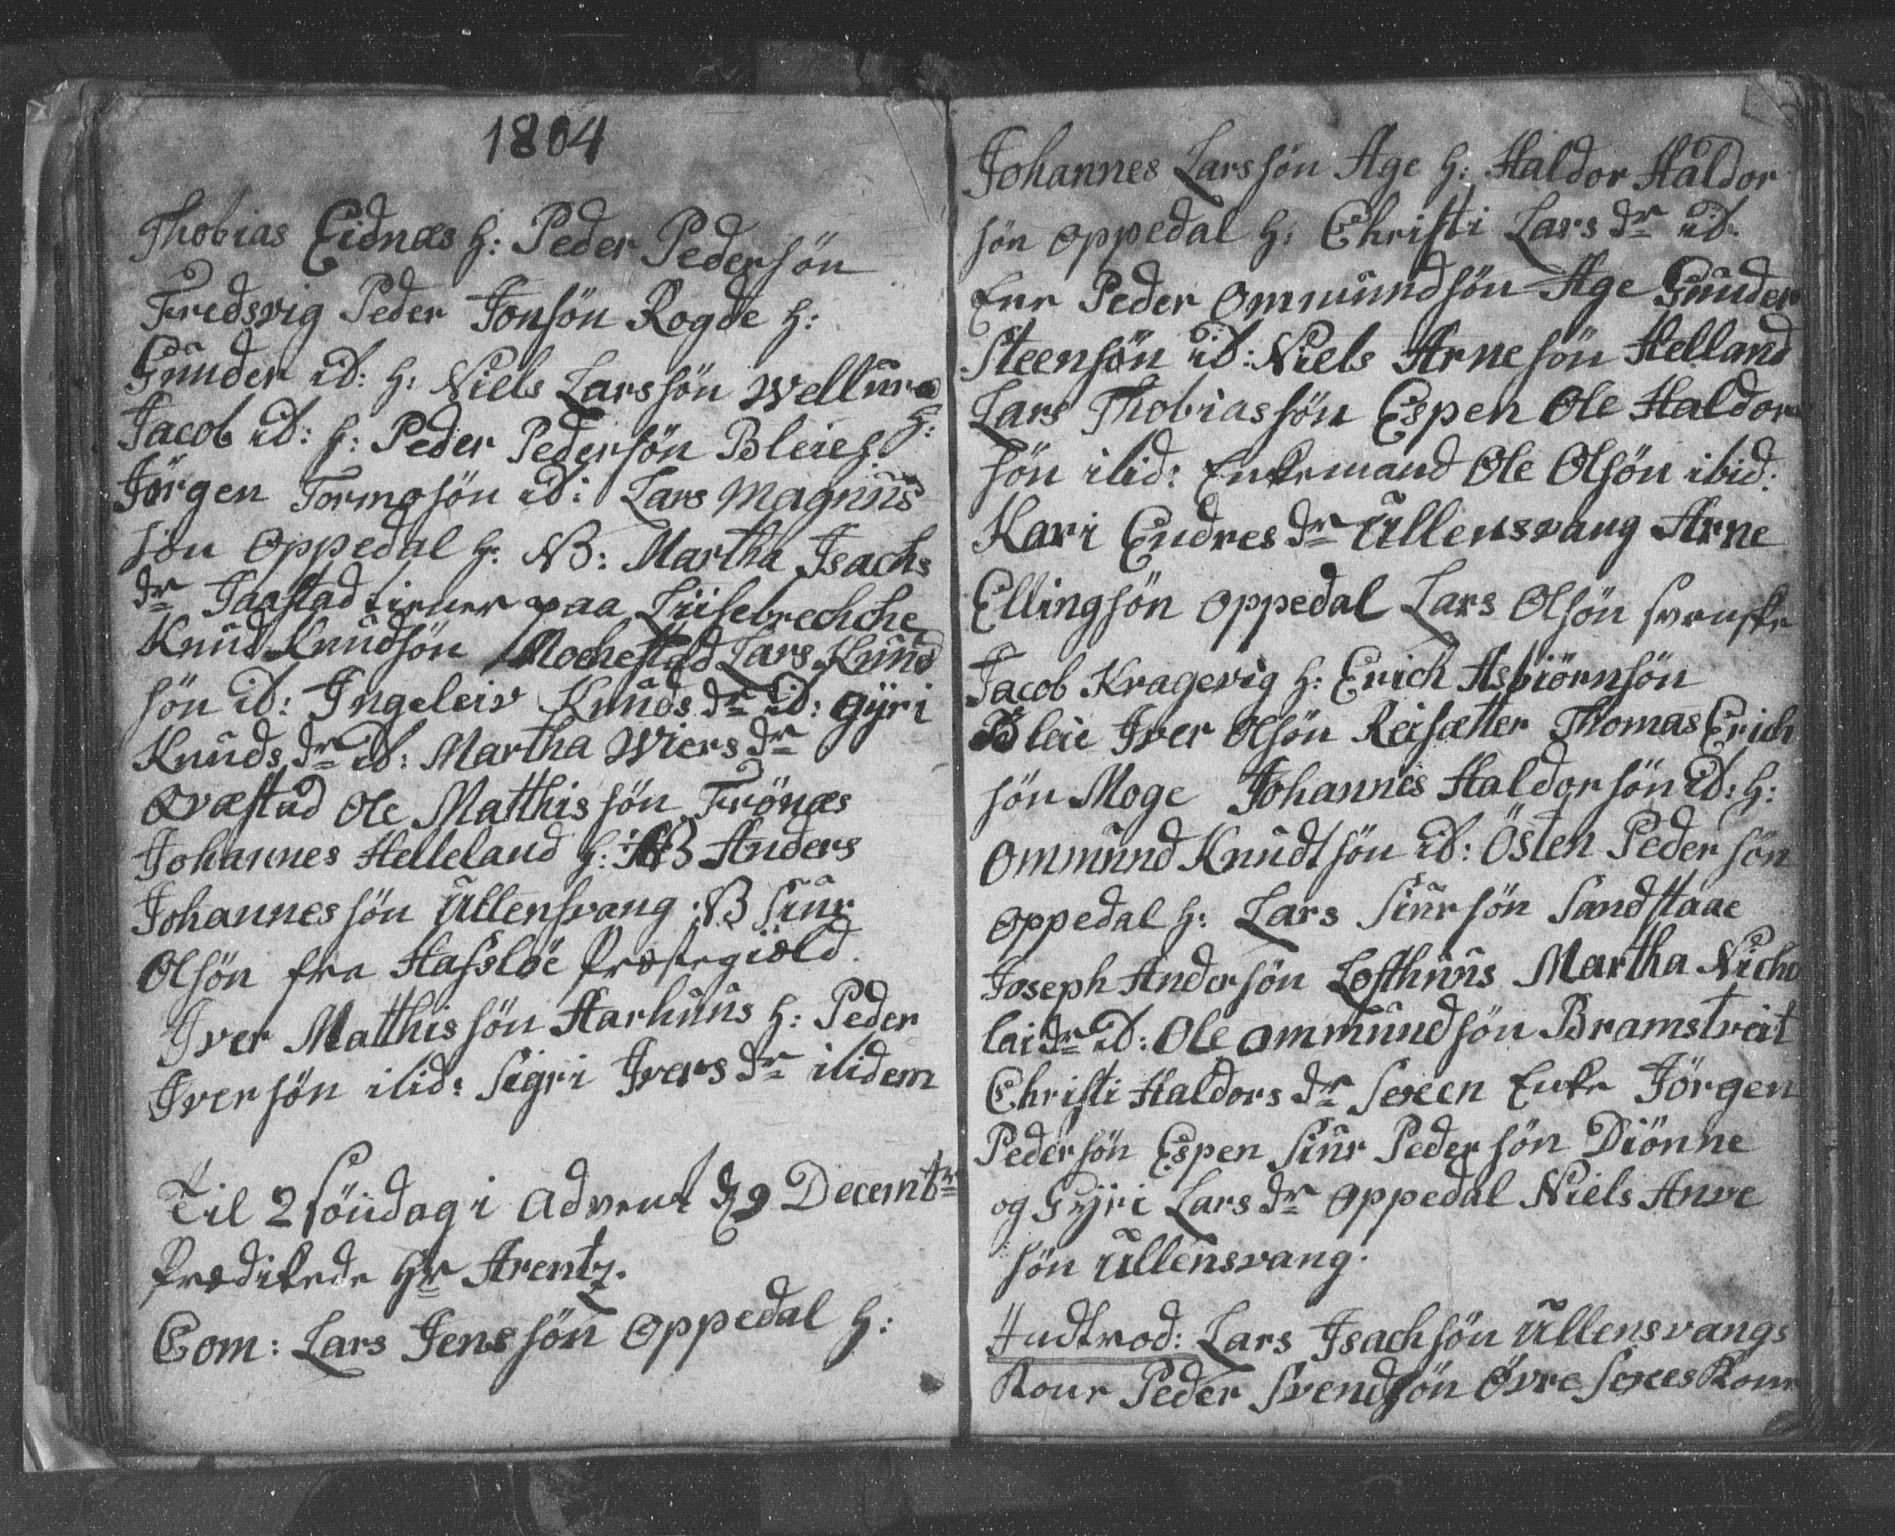 1804
Thobias Eidnæs h: Peder Pedersön
Fredsvig Peder Jonsön Rogde h:
Gunder id: h: Niels Larssön Wellure h:
Jacob id: h: Peder Pedersön Bleie h:
Jörgen Tormosön id: Lars Magnus
sön Oppedal h: NB: Martha Isachs
dr Jaastad tiener paa
Knud Knudsön Mochestad Lars Knud
sön id: Ingeleiv Knuds dr id: Gÿri
Knuds dr id: Martha Wiers dr
Qvæstad Ole Matthissön Frönæs
Johannes Helleland h: NB Anders
Johannessön Ullensvang NB Siur
Olsön fra Hafsloe Præstegiæld.
Iver Matthissön Aarhuus h: Peder
Iversön ibid: Sigri Ivers dr ibidem
Til 2 Söndag i Advent d 9 Decembr
Prædikede Hr Arentz.
Com: Lars Jenssön Oppedal h:
Johannes Larssön Age h: Haldor Haldor
sön Oppedal h: Christi Lars dr id.
Enr Peder Ommundsön Age Gunder
Steensön id: Niels Arnesön Helland
Lars Thobiassön Espen Ole Haldor
sön ibid: Enkemand Ole Olsön ibid:
Kari Endres dr Ullensvang Arne
Ellingsön Oppedal Lars Olsön svenske
Jacob Kragevig h: Erich Asbiörnsön
Bleie Iver Olsön Reisæter Thomas Erich
sön Moge Johannes Haldorsön id: h:
Ommund Knudtsön id: Östen Pedersön
Oppedal h: Lars Siursön Sandstaae
Joseph Andersön Lofthuus Martha Nicho
lai dr id: Ole Ommundsön Bramstveit
Christi Haldors dr Sexeen Enke Jörgen
Pedersön Espen Siur Pedersön Diönne
og Gÿri Lars dr Oppedal Niels Arne
sön Ullensvang.
Indtrod: Lars Isachsön Ullensvangs
Kour Peder Svendsön Övre Sexes Kour